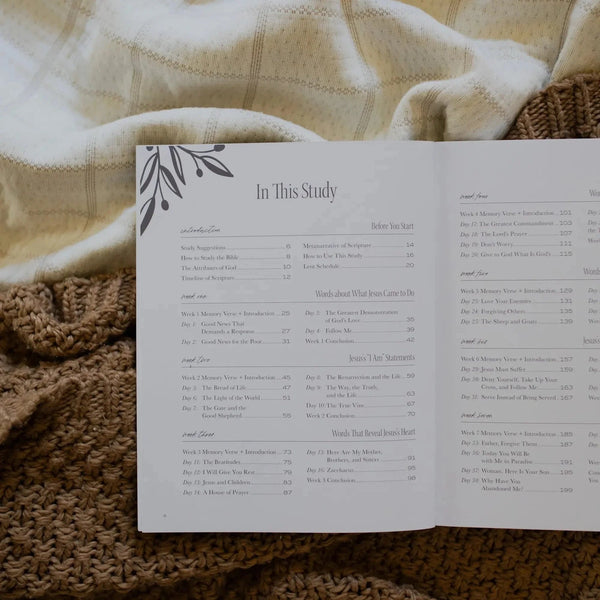 In This Study
introduction Before You Start
Study Suggestions 6
How to Study the Bible 8
The Attributes of God 10
Timeline of Scripture 12
Metanarrative of Scripture 14
How to Use This Study 16
Lent Schedule 20
week one Words about What Jesus Came to Do
Week 1 Memory Verse + Introduction 25
Day 1: Good News That
Demands a Response 27
Day 2: Good News for the Poor 31
Day 3: The Greatest Demonstration
of God's Love 35
Day 4: Follow Me 39
Week 1 Conclusion 42
week two Jesus's "I Am" Statements
Week 2 Memory Verse + Introduction 45
Day 5: The Bread of Life 47
Day 6: The Light of the World 51
Day 7: The Gate and the
Good Shepherd 55
Day 8: The Resurrection and the Life 59
Day 9: The Way, the Truth,
and the Life 63
Day 10: The True Vine 67
Week 2 Conclusion 70
week three Words That Reveal Jesus's Heart
Week 3 Memory Verse + Introduction 73
Day 11: The Beatitudes 75
Day 12: I Will Give You Rest 79
Day 13: Jesus and Children 83
Day 14: A House of Prayer 87
Day 15: Here Are My Mother,
Brothers, and Sisters 91
Day 16: Zacchaeus 95
Week 3 Conclusion 98
week four
Week 4 Memory Verse + Introduction 101
Day 17: The Greatest Commandment 103
Day 18: The Lord's Prayer 107
Day 19: Don't Worry 111
Day 20: Give to God What Is God's 115
week five Words
Week 5 Memory Verse + Introduction 129
Day 23: Love Your Enemies 131
Day 24: Forgiving Others 135
Day 25: The Sheep and Goats 139
week six
Week 6 Memory Verse + Introduction 157
Day 29: Jesus Must Suffer 159
Day 30: Deny Yourself, Take Up Your
Cross, and Follow Me 163
Day 31: Serve Instead of Being Served 167
week seven
Week 7 Memory Verse + Introduction 185
Day 35: Father, Forgive Them 187
Day 36: Today You Will Be
with Me in Paradise 191
Day 37: Woman, Here Is Your Son 195
Day 38: Why Have You
Abandoned Me? 199